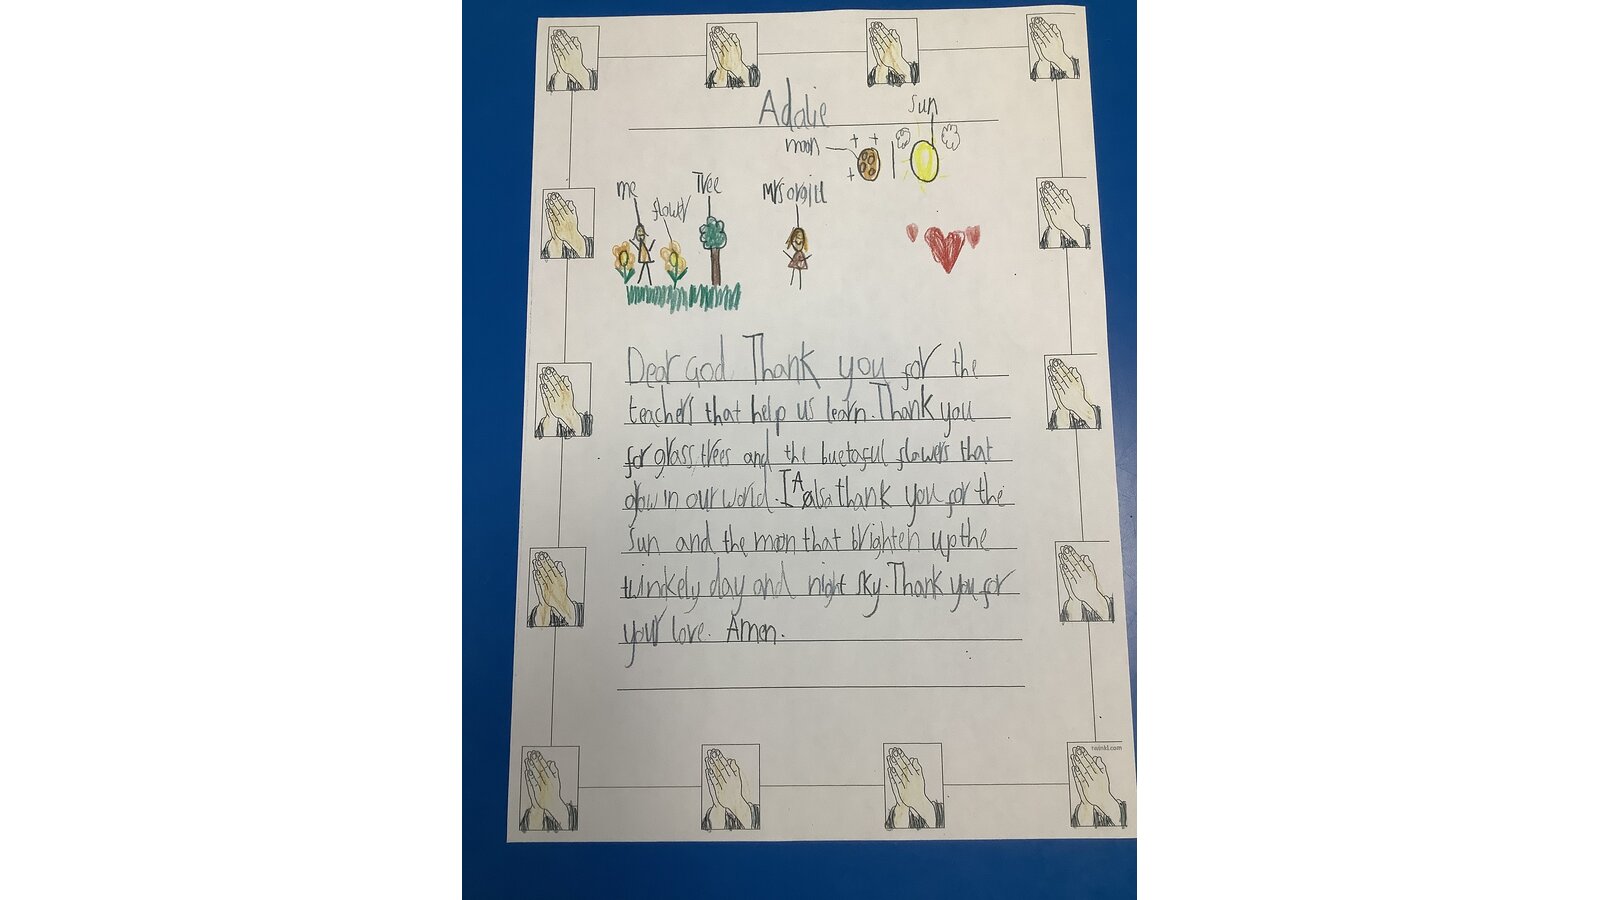 Adalie
sun
moon
me
flower
Tree
Mrs orgill
Dear God Thank you for the
teachers that help us learn. Thank you
for grass, trees and the buetaful flowers that
grow in our world. I A also thank you for the
sun and the moon that brighten up the
twinkely day and night sky. Thank you for
your love. Amen.
twinkl.com